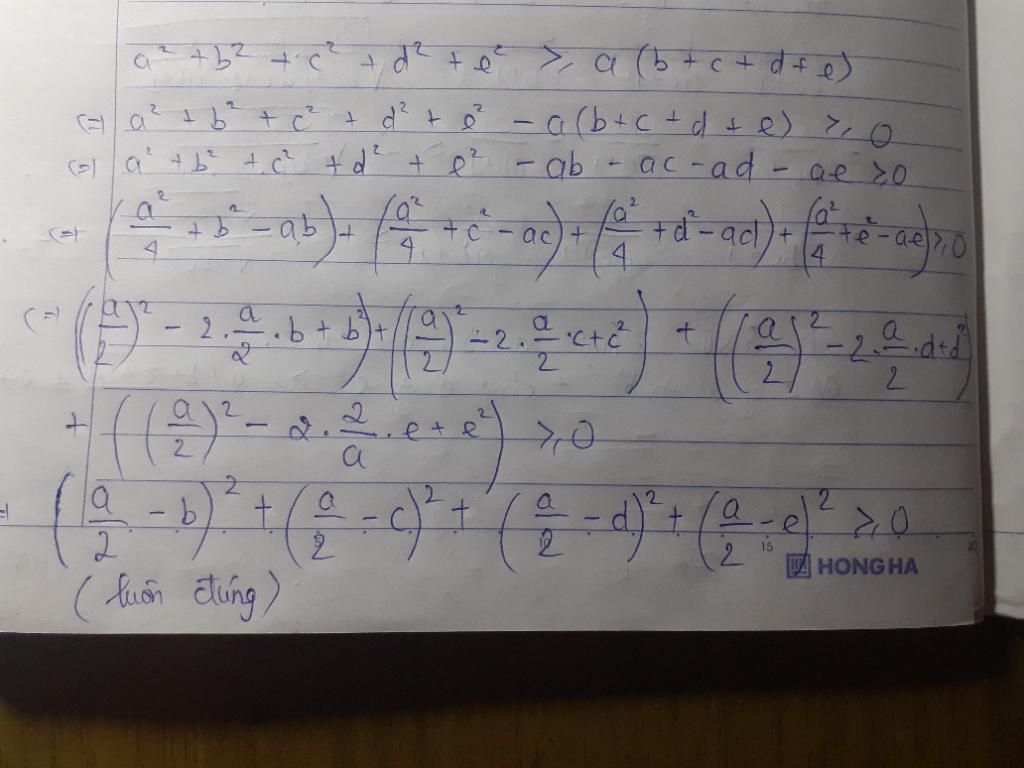 a² + b² + c² + d² + e² ≥ a (b + c + d + e)
(=) a² + b² + c² + d² + e² - a (b + c + d + e) ≥ 0
(=) a² + b² + c² + d² + e² - ab - ac - ad - ae ≥ 0
(=) (a²/4 + b² - ab) + (a²/4 + c² - ac) + (a²/4 + d² - ad) + (a²/4 + e² - ae) ≥ 0
(=) ((a/2)² - 2 . a/2 . b + b²) + ((a/2)² - 2 . a/2 . c + c²) + ((a/2)² - 2 . a/2 . d + d²)
+ ((a/2)² - 2 . 2/a . e + e²) ≥ 0
= (a/2 - b)² + (a/2 - c)² + (a/2 - d)² + (a/2 - e)² ≥ 0
15 20
HONG HA
(luôn đúng)